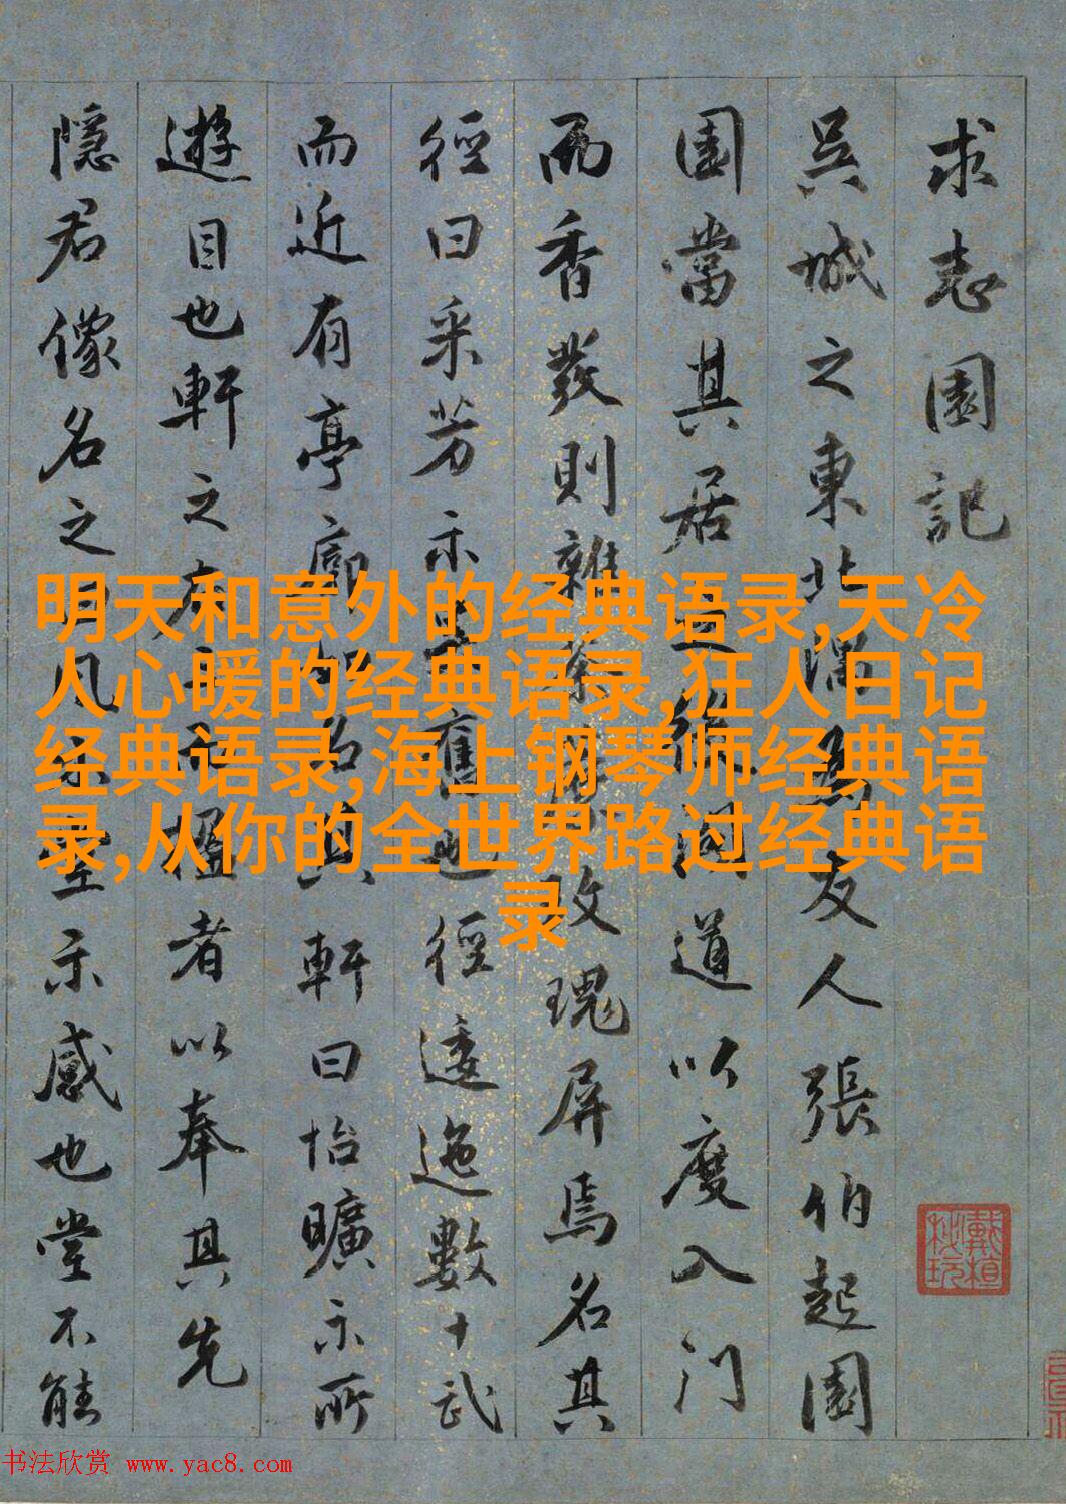 求志園記
吳城之東北隅為友人張伯起園
園當其居後閣道以度入門
而香發則雜玫瑰屏焉名其
徑曰采芳示舊也徑逶迤數十武
而近有亭廊名其軒曰怡曠示所
遊目也軒之左楹者以奉其先
隱君像名之曰風木堂示感也堂不能
明天和意外的经典语录,天冷
人心暖的经典语录,狂人日记
经典语录,海上钢琴师经典语
录,从你的全世界路过经典语
录
书法欣赏 www.yac8.com